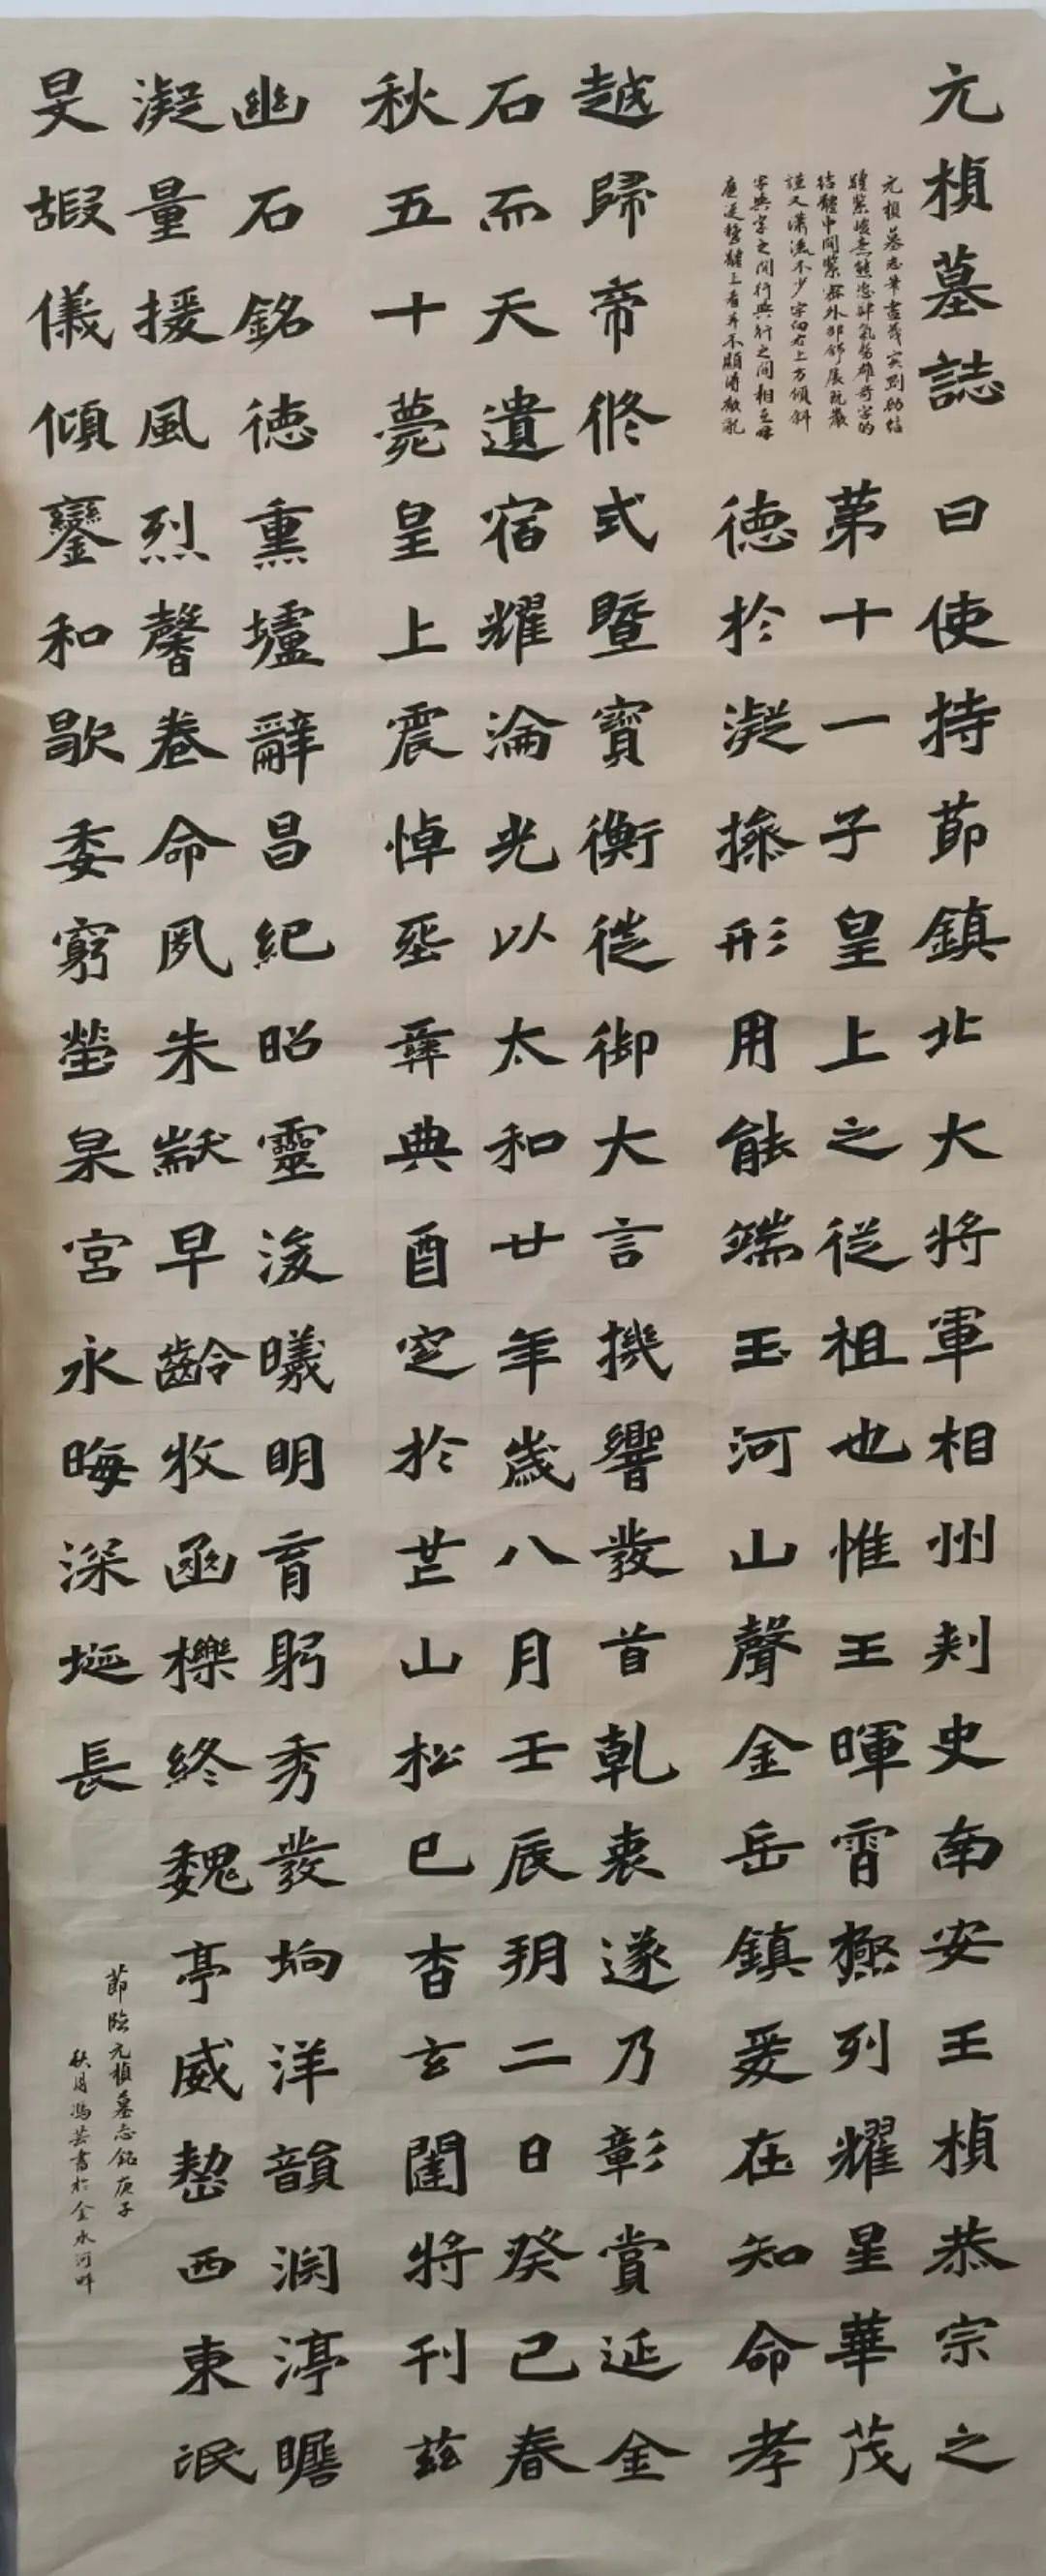 元楨墓誌 曰使持節鎮北大將軍相州刾史南安王楨恭宗之
元楨墓志筆畫茂實剛勁結
體緊峻意態恣肆氣勢雄奇字的
結體中間緊密外部舒展既嚴
謹又瀟洒不少字向右上方傾斜
字與字之間行與行之間相互呼
應從整體上看并不顯得散亂
第十一子皇上之從祖也惟王暉霄極列耀星華茂
德於凝操形用能端玉河山聲金岳鎮爰在知命孝
越歸帝脩式暨寶衡徙御大言機響發首乾衷遂乃彰賞延金
石而天遺宿耀淪光以太和廿年歲八月壬辰朔二日癸巳春
秋五十薨皇上震悼丕彝典酉定於芒山松已杳玄闥將刊茲
幽石銘德熏壚辭昌紀昭靈浚曦明育躬秀發坰洋韻淵渟瞻
凝量援風烈馨卷命夙朱猷早齡收函櫟終魏亭威整西東泯
旻嘏儀傾鑾和歇委窮塋泉宮永晦深埏長
節臨元楨墓志銘庚子
秋月馮芸書於金水河畔